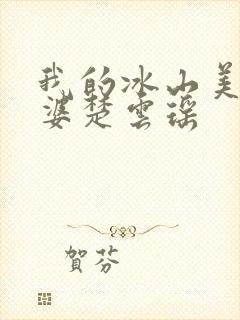 我的冰山美
婆楚雲瑶
賀芬